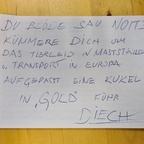 DU BLÖDE SAU NOITZ
KÜMMERE DICH UM
DAS TIERLEID IN MASTSTÄLLEN
u. TRANSPORT IN EUROPA
AUFGEPASST EINE KUKEL
IN „GOLD" FÜHR
DIECH